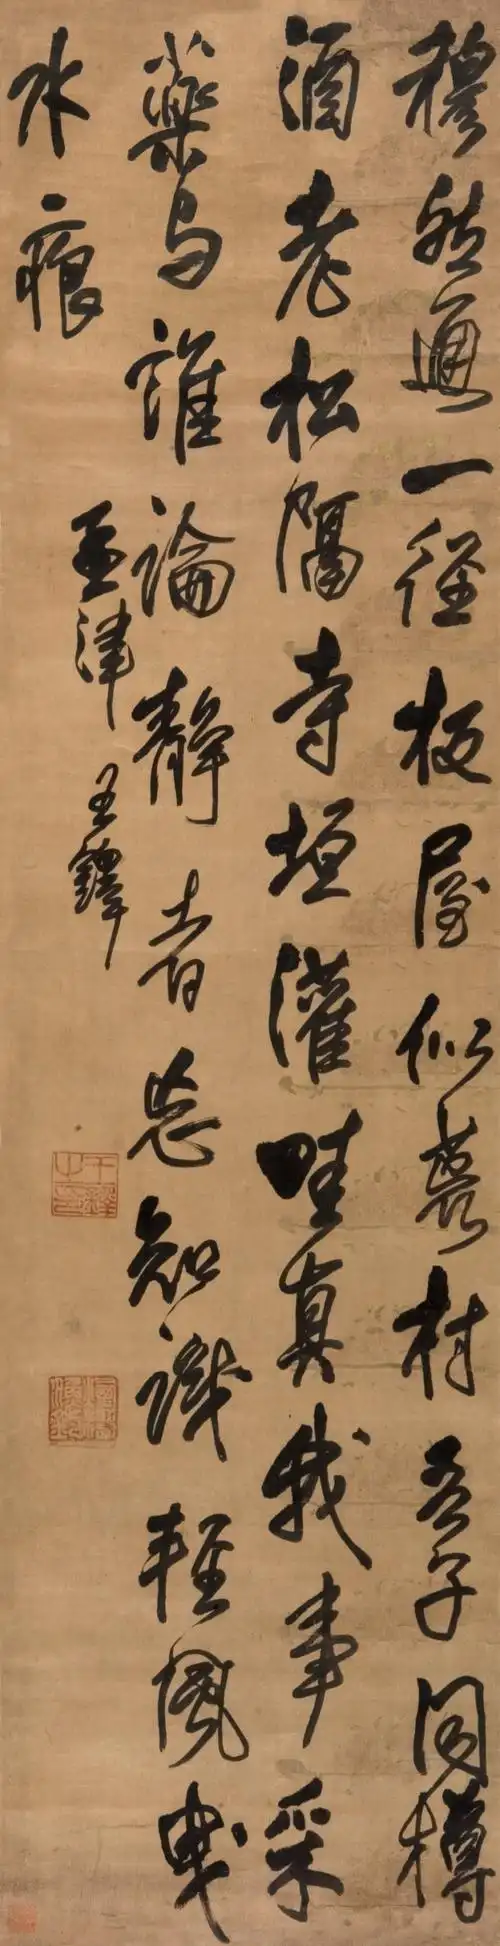 穆然通一徑板屋似農村吾子同樽
酒老松隔寺垣灌畦真我事采
藥与誰論靜者忘知識輕風曳
水痕
孟津王鐸
王鐸之印